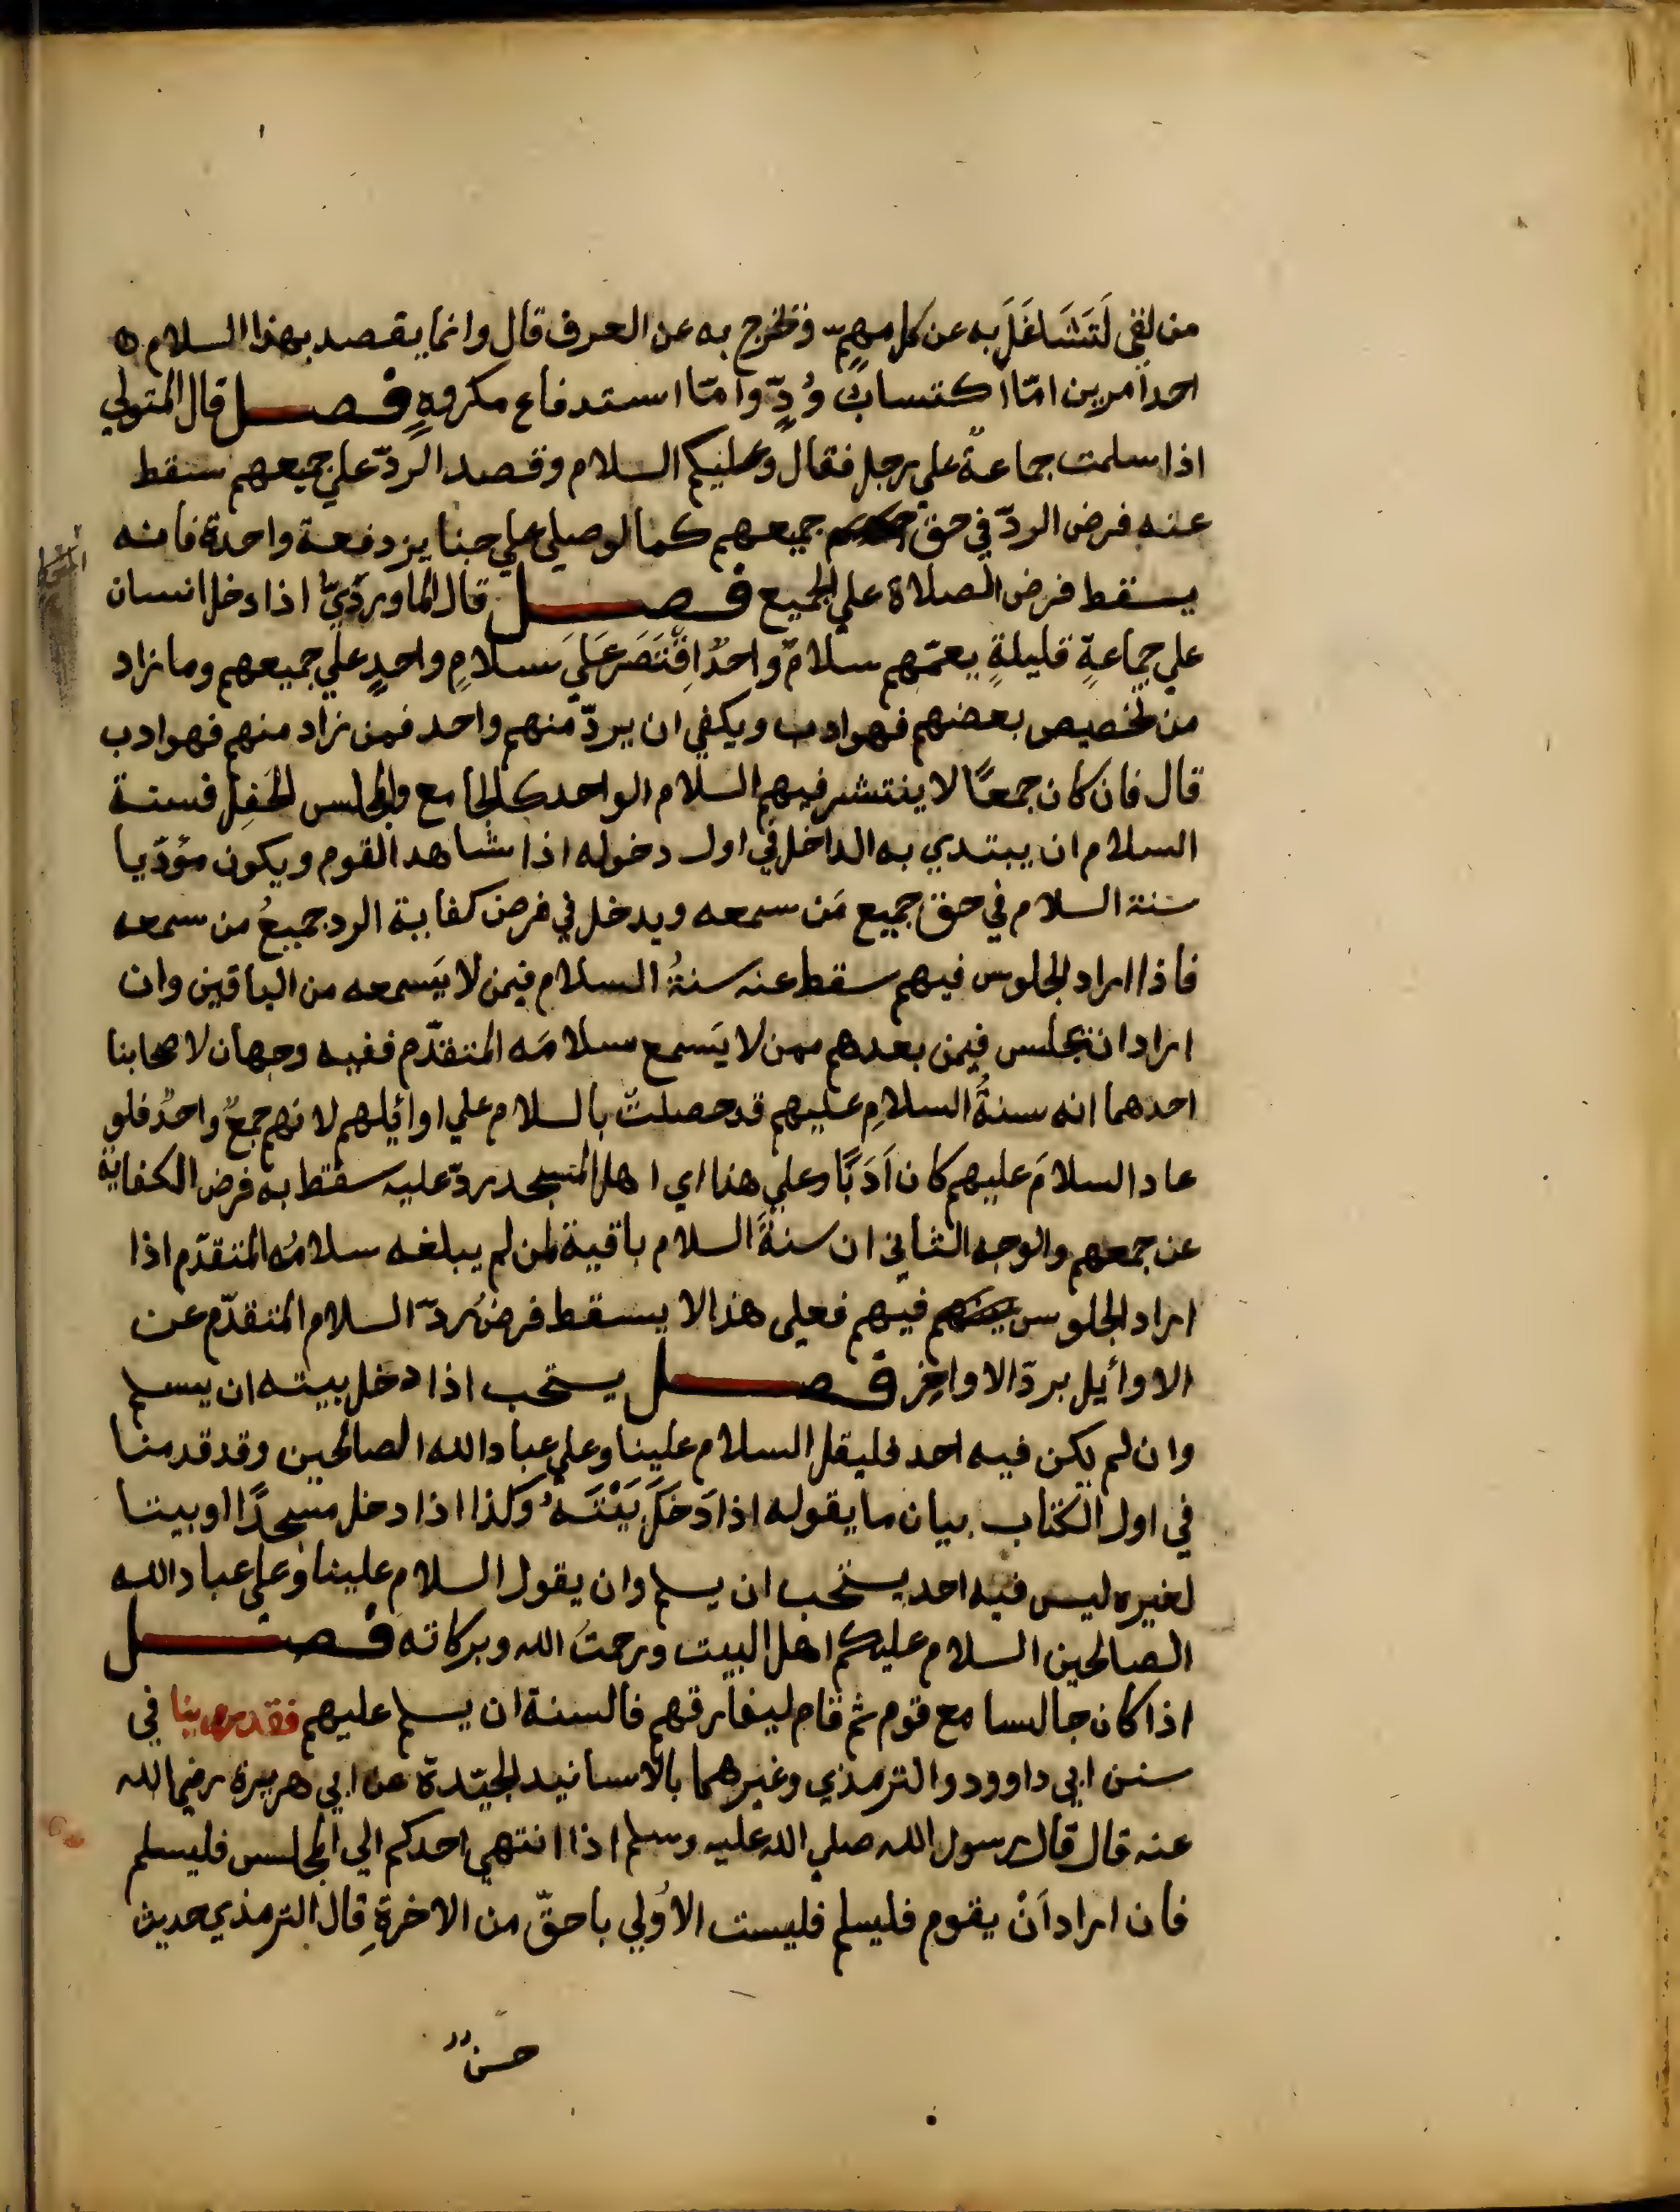 من لقي لَتَشَاغَلَ به عن كل مهمٍّ وخرج به عن العرف قال وانما يقصد بهذا السلام
احد امرين امّا اكتسابَ وُدٍّ وامّا استدفاع مكروهٍ فصل قال المتولي
اذا سلمت جماعةٌ علي رجل فقال وعليكم السلام وقصد الردّ علي جميعهم سقط
عنه فرض الردّ في حق جميعهم كما لو صلي علي جنايز دفعة واحدة فانه
يسقط فرض الصلاة علي الجميع فصل قال الماورديّ اذا دخل انسان
علي جماعةٍ قليلةٍ يعمّهم سلامٌ واحدٌ اقْتَصَرَ عَلَيَ سلامٍ واحدٍ علي جميعهم وما زاد
من تخصيص بعضهم فهو ادب ويكفي ان يردّ منهم واحد فمن زاد منهم فهو ادب
قال فان كان جمعًا لا ينتشر فيهم السلام الواحد كالجامع والمجلس الحَفِل فسنة
السلام ان يبتدي به الداخل في اول دخوله اذا شاهد القوم ويكون مؤدّيا
سنة السلام في حق جميع مَن سمعه ويدخل في فرض كفاية الرد جميعُ من سمعه
فاذا اراد الجلوس فيهم سقط عنه سنةُ السلام فيمن لا يَسمعه من الباقين وان
اراد ان يجلس فيمن بعدهم ممن لا يَسمع سلامَه المتقدّم ففيه وجهان لاصحابنا
احدهما انه سنةُ السلامِ عليهم قد حصلتْ بالسلام علي اوائلهم لانهم جمعٌ واحدٌ فلو
عاد السلامَ عليهم كان اَدَبًا وعلي هذا اي اهل المسجد ردّ عليه سقط به فرض الكفاية
عن جمعهم والوجه الثاني ان سنةَ السلام باقية لمن لم يبلغه سلامُه المتقدّم اذا
اراد الجلوس فيهم فعلي هذا لا يسقط فرضُ ردّ السلام المتقدّم عن
الاوائيل بردّ الاواخِر فصل يستحب اذا دخل بيته ان يسلم
وان لم يكن فيه احد فليقل السلام علينا وعلي عباد الله الصالحين وقد قدمنا
في اول الكتاب بيان ما يقوله اذا دَخَلَ بَيْتَهُ وكذا اذا دخل مسجدًا او بيتا
لغيره ليس فيه احد يستحب ان يسلم وان يقول السلام علينا وعلي عباد الله
الصالحين السلام عليكم اهل البيت ورحمتُ الله وبركاته فصل
اذا كان جالسا مع قوم ثم قام ليفارقهم فالسنة ان يسلم عليهم فقد روينا في
سنن ابي داوود والترمذي وغيرهما بالاسانيد الجيّدة عن ابي هريرة رضي الله
عنه قال قال رسول الله صلي الله عليه وسلم اذا انتهي احدكم الي المجلس فليسلم
فان اراد اَنْ يقوم فليسلم فليست الاُولي باحقّ من الاخرةِ قال الترمذي حديث
حسنٌ